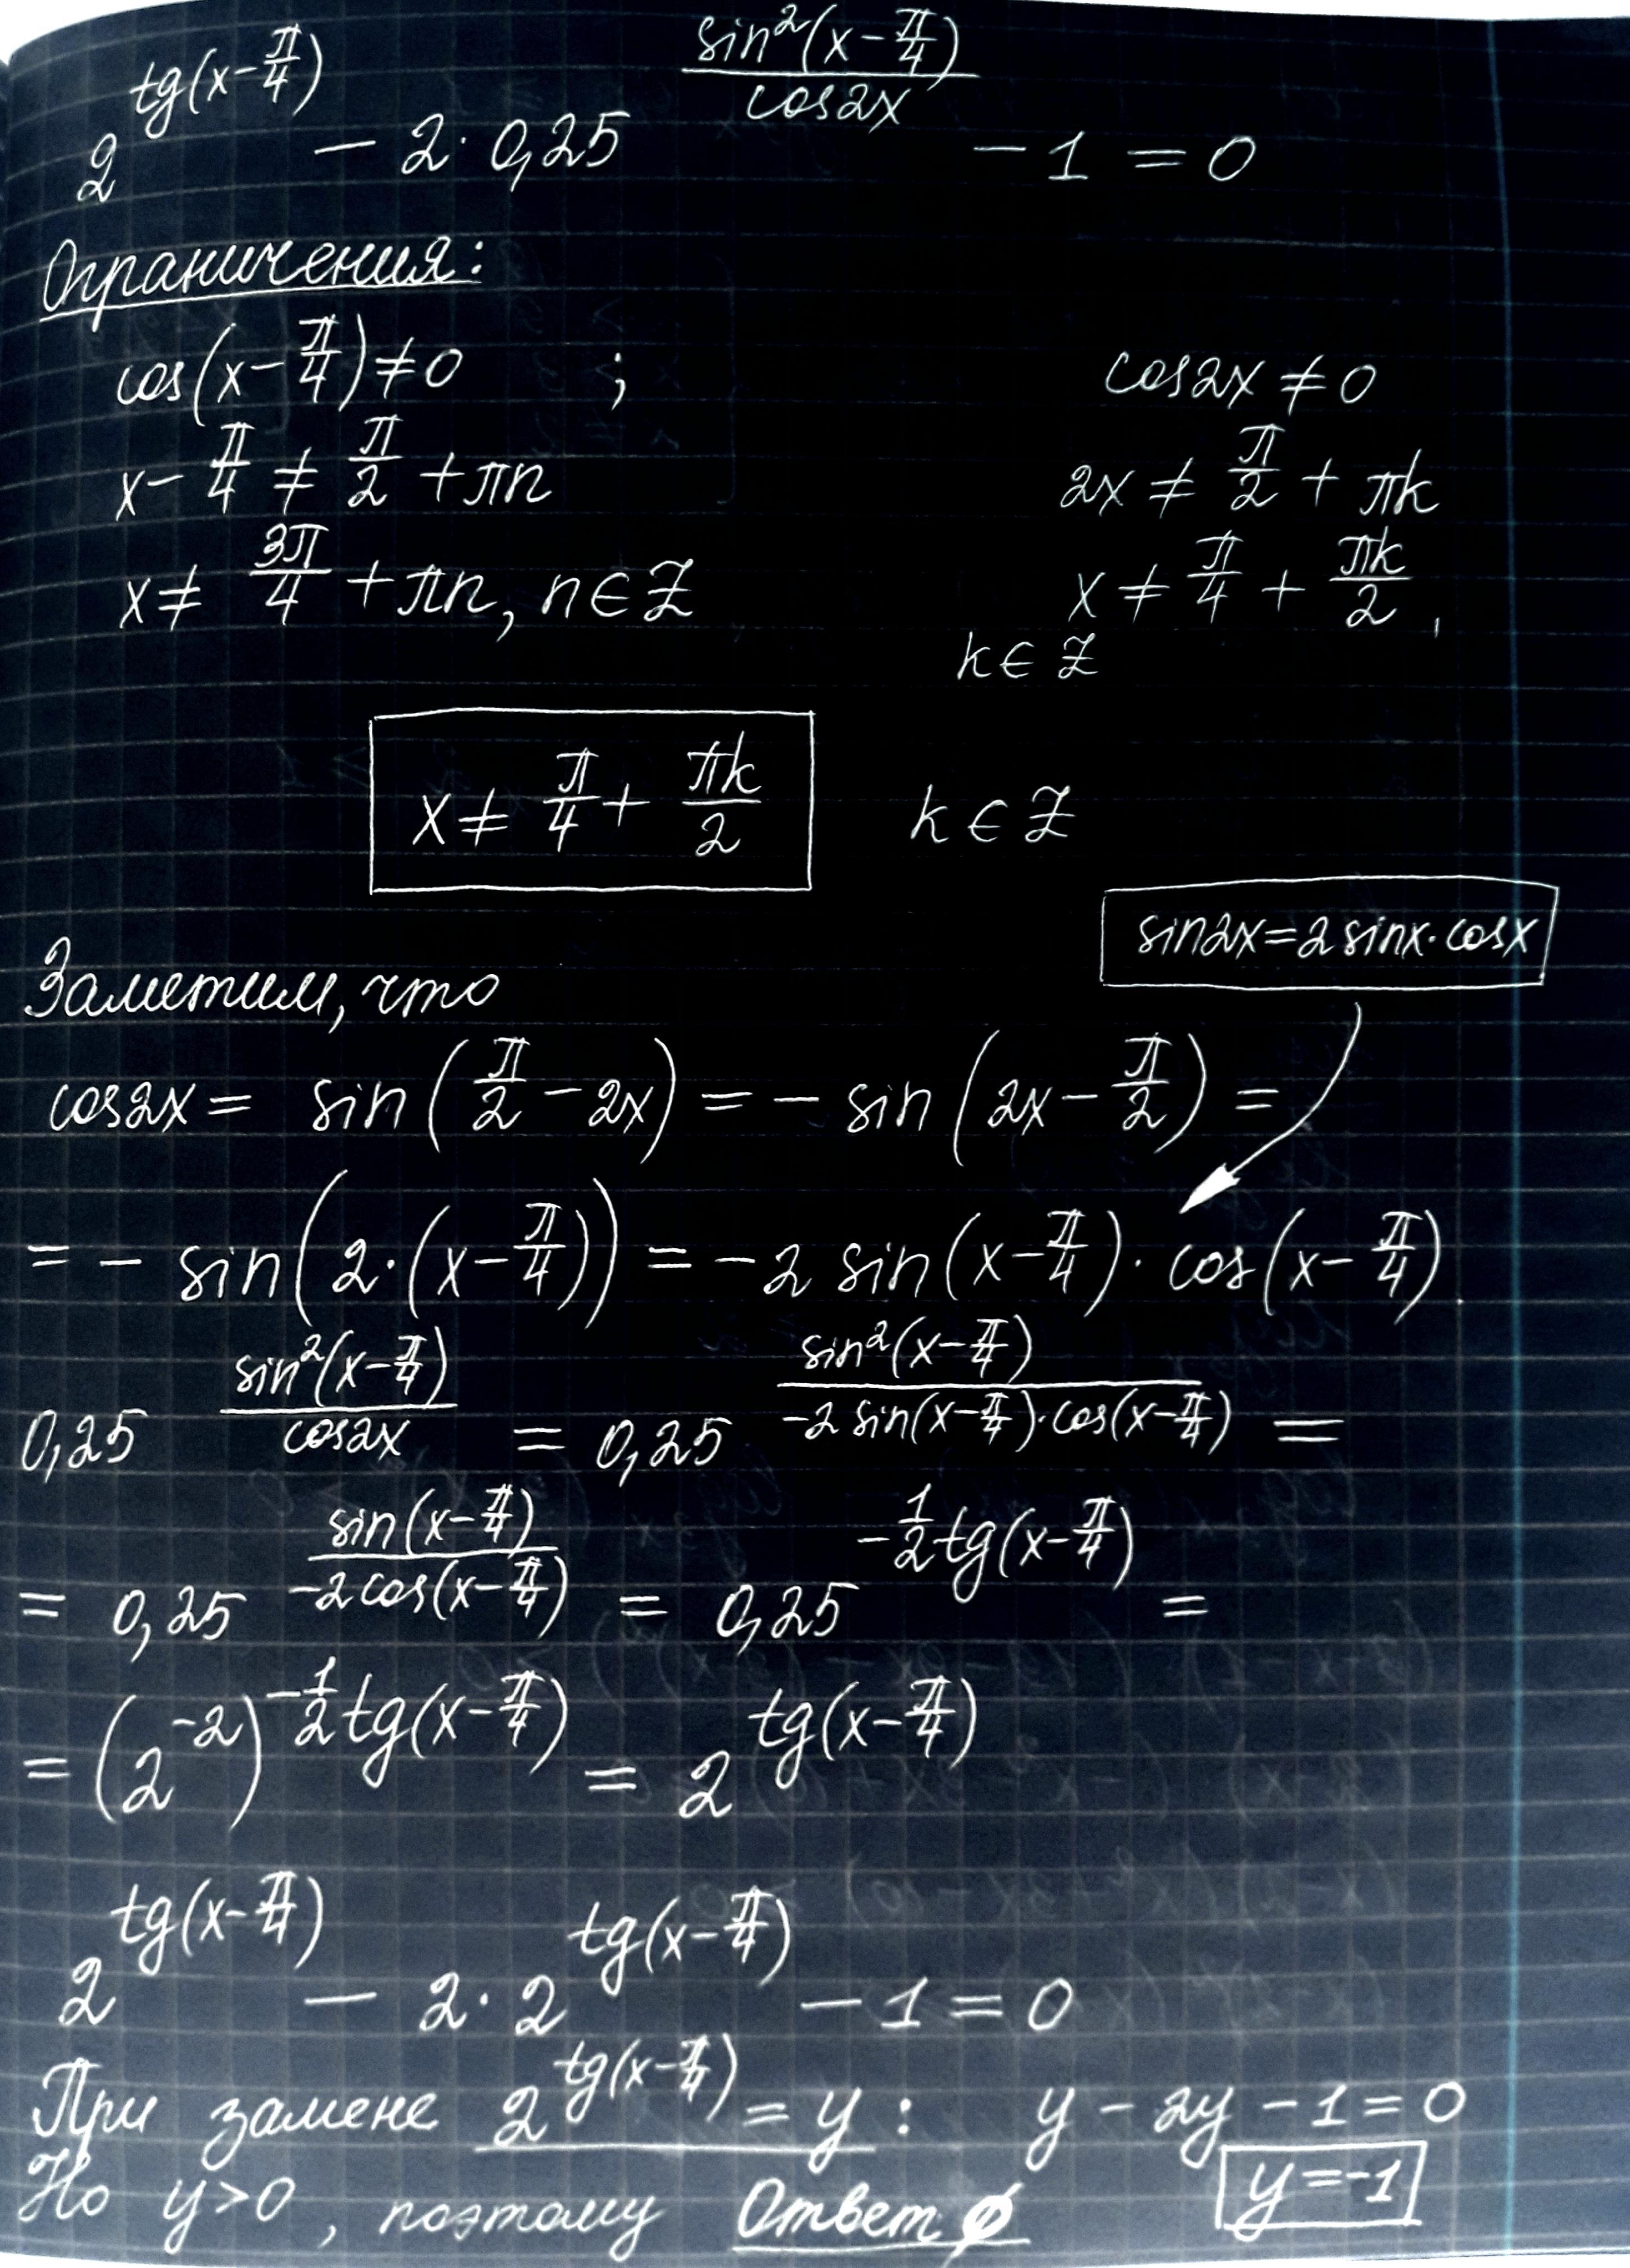 2^{tg(x-π/4)} - 2·0,25^{sin²(x-π/4)/cos2x} - 1 = 0
Ограничения:
cos(x-π/4)≠0 ; cos2x≠0
x-π/4 ≠ π/2 +πn 2x ≠ π/2 + πk
x≠ 3π/4 +πn, n∈Z x ≠ π/4 + πk/2,
k∈Z
x≠ π/4 + πk/2 k∈Z
sin2x=2sinx·cosx
Заметим, что
cos2x = sin(π/2 - 2x) = - sin(2x - π/2) =
= - sin(2·(x-π/4)) = -2 sin(x-π/4)·cos(x-π/4)
0,25^{sin²(x-π/4)/cos2x} = 0,25^{sin²(x-π/4)/-2sin(x-π/4)·cos(x-π/4)} =
= 0,25^{sin(x-π/4)/-2cos(x-π/4)} = 0,25^{-1/2 tg(x-π/4)} =
= (2^{-2})^{-1/2 tg(x-π/4)} = 2^{tg(x-π/4)}
2^{tg(x-π/4)} - 2·2^{tg(x-π/4)} - 1 = 0
При замене 2^{tg(x-π/4)} = y : y - 2y - 1 = 0
Но y>0, поэтому Ответ ∅ y=-1